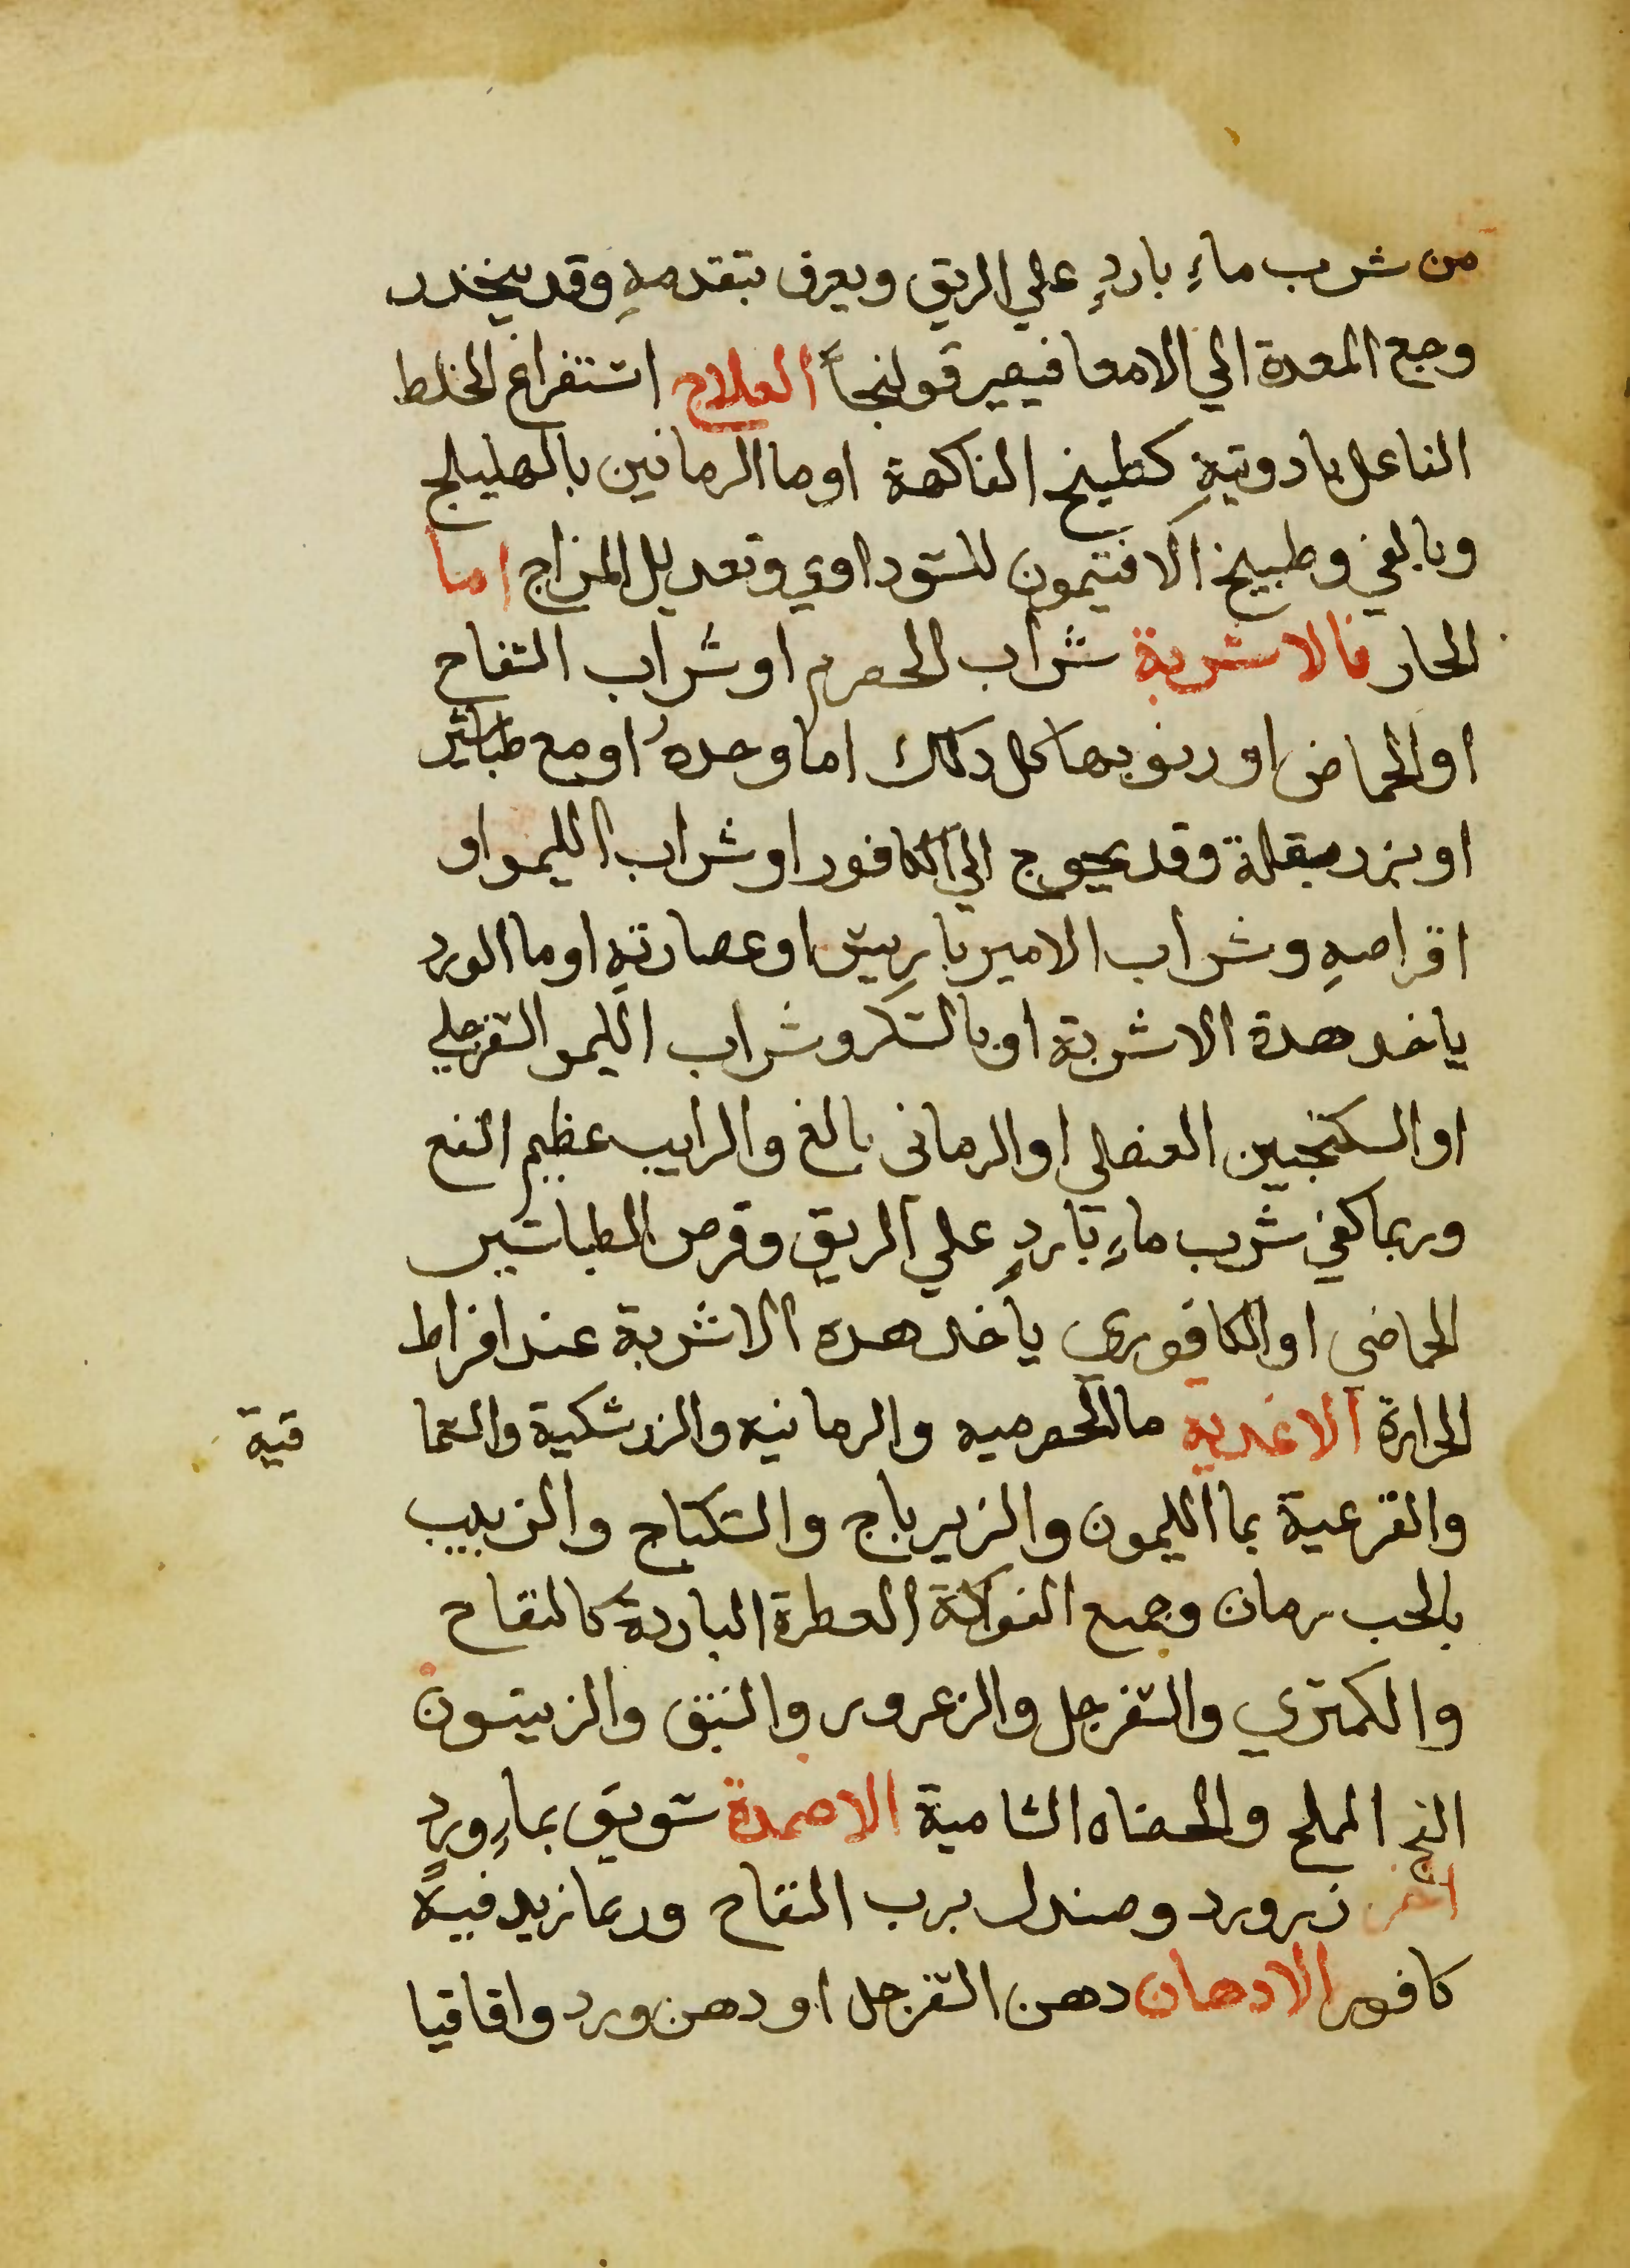 من شرب ماءٍ باردٍ علي الريق ويعرف بتقدمهِ وقد ينحدر
وجع المعدة الي الامعا فيصير قولنجاً العلاج استفراغ الخلط
الفاعل بادويتهِ كطبيخ الفاكهة او ما الرمانين بالهليلج
وبالغي وطبيخ الافتيمون للسوداوي وتعديل المزاج اما
الحار فالاشربة شراب الحصرم او شراب التفاح
او الحماض او ربوبها كل دلك اما وحدهُ او مع طباشير
او بزر بقلة وقد يحوج الي الكافور او شراب الليمو او
اقراصهِ وشراب الاميرباريس او عصارتهِ او ما الورد
ياخد هدة الاشربة او بالسكر وشراب الليمو السفرجلي
او السكنجبين العنصلي او الرماني بالغ والرايب عظيم النفع
وربما كفي شرب ماءٍ باردٍ علي الريق وقرص الطباشير
الحماضي او الكافوري ياخد هده الاشربة عند افراط
الحرارة الاغدية مالحصرميه والرمانيه والزرشكية والسما
قية
والقرعية بما الليمون والزيرباج والسكباج والزبيب
بالحب رمان وجميع الفواكة العطرة الباردة كالتفاح
والكمتري والسفرجل والزعرور والنبق والزيتون
الفج المملح والحصاه الشامية الاضمدة سويق بماءِ وردٍ
اخر زرورد وصندل برب التفاح وربما زيد فيه
كافور الادهان دهن السفرجل او دهن ورد واقاقيا